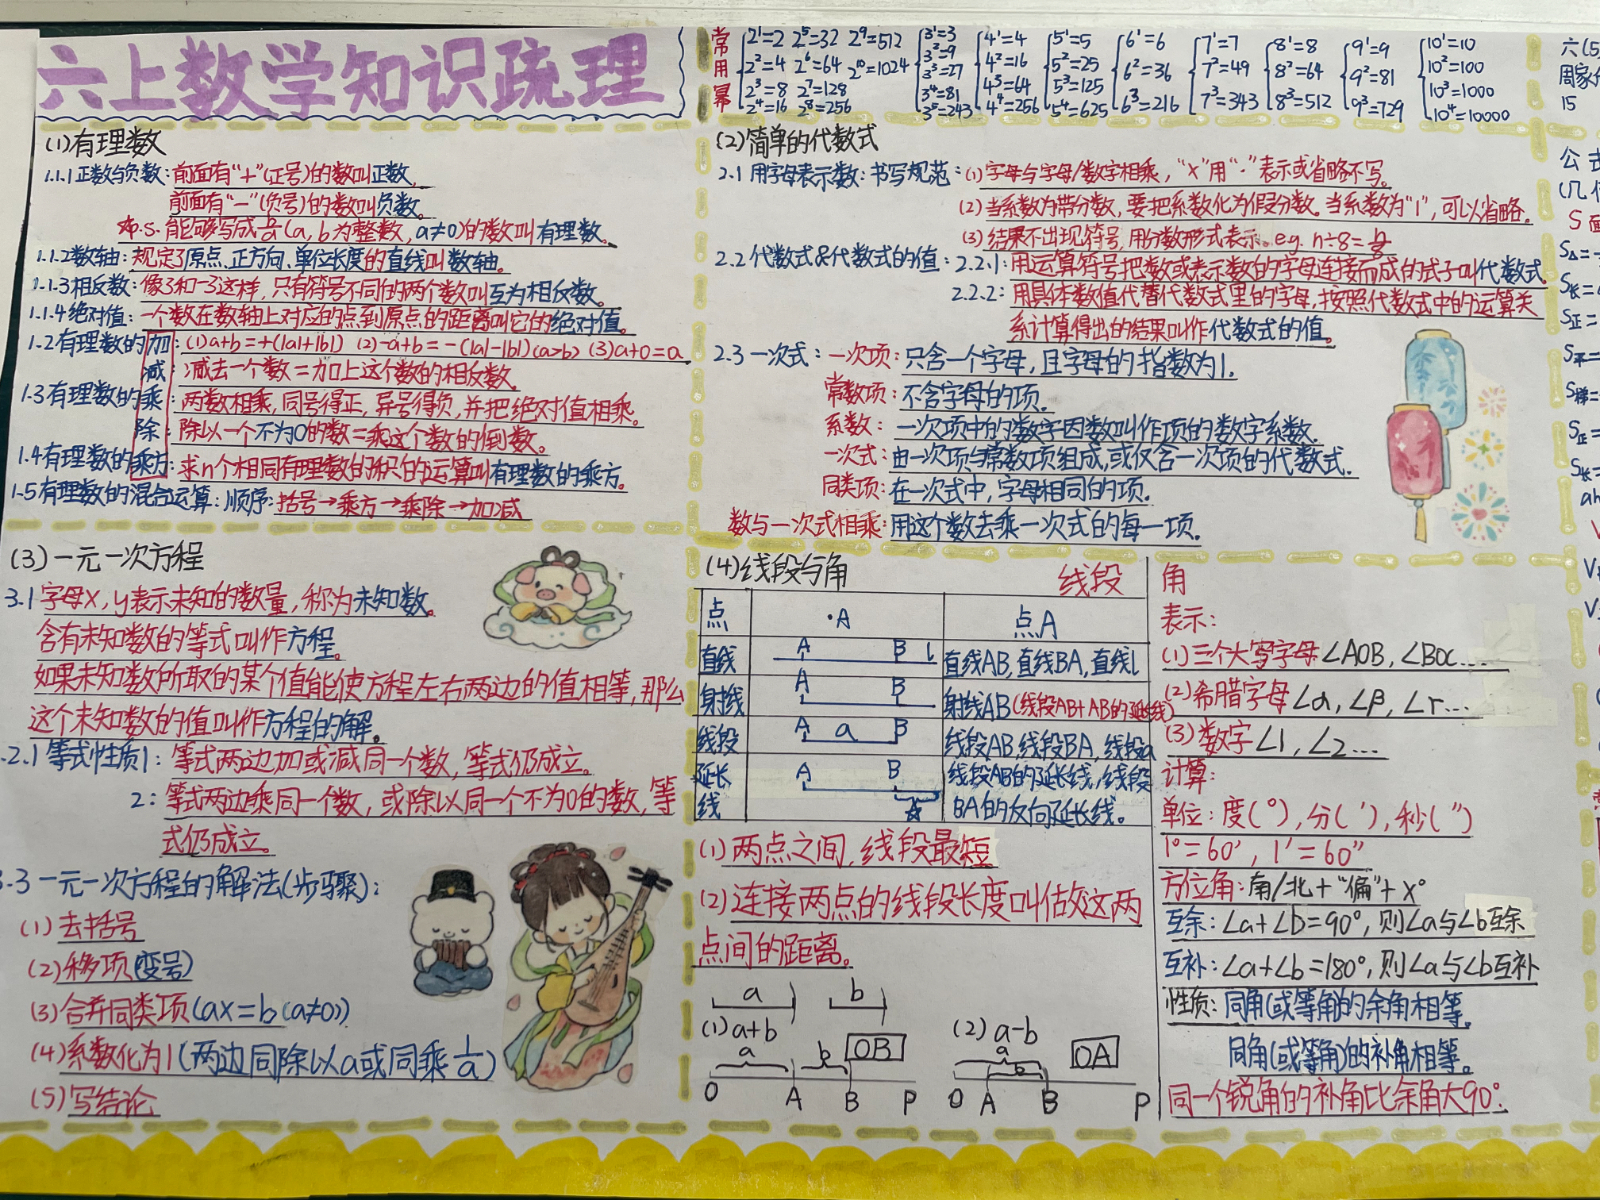 六上数学知识疏理
常用幂
2¹=2 2⁵=32 2⁹=512
2²=4 2⁶=64 2¹⁰=1024
2³=8 2⁷=128
2⁴=16 2⁸=256
3¹=3
3²=9
3³=27
3⁴=81
3⁵=243
4¹=4
4²=16
4³=64
4⁴=256
5¹=5
5²=25
5³=125
5⁴=625
6¹=6
6²=36
6³=216
7¹=7
7²=49
7³=343
8¹=8
8²=64
8³=512
9¹=9
9²=81
9³=729
10¹=10
10²=100
10³=1000
10⁴=10000
六(5
周家
15
(1)有理数
1.1.1正数与负数:前面有"+"(正号)的数叫正数。
前面有"一"(负号)的数叫负数。
p.s.能够写成b/a(a,b为整数,a≠0)的数叫有理数。
1.1.2数轴:规定了原点、正方向、单位长度的直线叫数轴。
1.1.3相反数:像3和-3这样,只有符号不同的两个数叫互为相反数。
1.1.4绝对值:一个数在数轴上对应的点到原点的距离叫它的绝对值。
1.2有理数的加:(1)a+b=+(|a|+|b|) (2)-a+b=-(|a|-|b|)(a>b) (3)a+0=a
减:减去一个数=加上这个数的相反数。
1.3有理数的乘:两数相乘,同号得正,异号得负,并把绝对值相乘。
除:除以一个不为0的数=乘这个数的倒数。
1.4有理数的乘方:求n个相同有理数的积的运算叫有理数的乘方。
1.5有理数的混合运算:顺序:括号→乘方→乘除→加减
(2)简单的代数式
2.1用字母表示数:书写规范:(1)字母与字母/数字相乘,"×"用"·"表示或省略不写。
(2)当系数为带分数,要把系数化为假分数。当系数为"1",可以省略。
(3)结果不出现符号,用分数形式表示。e.g. n÷8=n/8
2.2代数式&代数式的值:2.2.1:用运算符号把数或表示数的字母连接而成的式子叫代数式
2.2.2:用具体数值代替代数式里的字母,按照代数式中的运算关
系计算得出的结果叫作代数式的值。
2.3一次式:一次项:只含一个字母,且字母的指数为1.
常数项:不含字母的项。
系数:一次项中的数字因数叫作项的数字系数。
一次式:由一次项与常数项组成,或仅含一次项的代数式.
同类项:在一次式中,字母相同的项.
数与一次式相乘:用这个数去乘一次式的每一项.
(3)一元一次方程
3.1字母x,y表示未知的数量,称为未知数。
含有未知数的等式叫作方程。
如果未知数所取的某个值能使方程左右两边的值相等,那么
这个未知数的值叫作方程的解。
.2.1等式性质1:等式两边加或减同一个数,等式仍成立。
2:等式两边乘同一个数,或除以同一个不为0的数,等
式仍成立。
3.3一元一次方程的解法(步骤):
(1)去括号
(2)移项(变号)
(3)合并同类项(ax=b(a≠0))
(4)系数化为1(两边同除以a或同乘1/a)
(5)写结论
(4)线段与角
线段
点 ·A 点A
直线 A B l 直线AB,直线BA,直线l
射线 A B 射线AB(线段AB+AB的延长线)
线段 A a B 线段AB,线段BA,线段a
延长线 A B 线段AB的延长线,线段
BA的反向延长线。
(1)两点之间,线段最短
(2)连接两点的线段长度叫做这两
点间的距离。
a b
(1)a+b
a b OB
O A B P
(2)a-b
a b OA
O A B P
角
表示:
(1)三个大写字母∠AOB,∠BOC....
(2)希腊字母∠α,∠β,∠r...
(3)数字∠1,∠2...
计算:
单位:度(°),分(′),秒(″)
1°=60′,1′=60″
方位角:南/北+"偏"+x°
互余:∠a+∠b=90°,则∠a与∠b互余
互补:∠a+∠b=180°,则∠a与∠b互补
性质:同角(或等角)的余角相等。
同角(或等角)的补角相等。
同一个锐角的补角比余角大90°.
公
(几
S